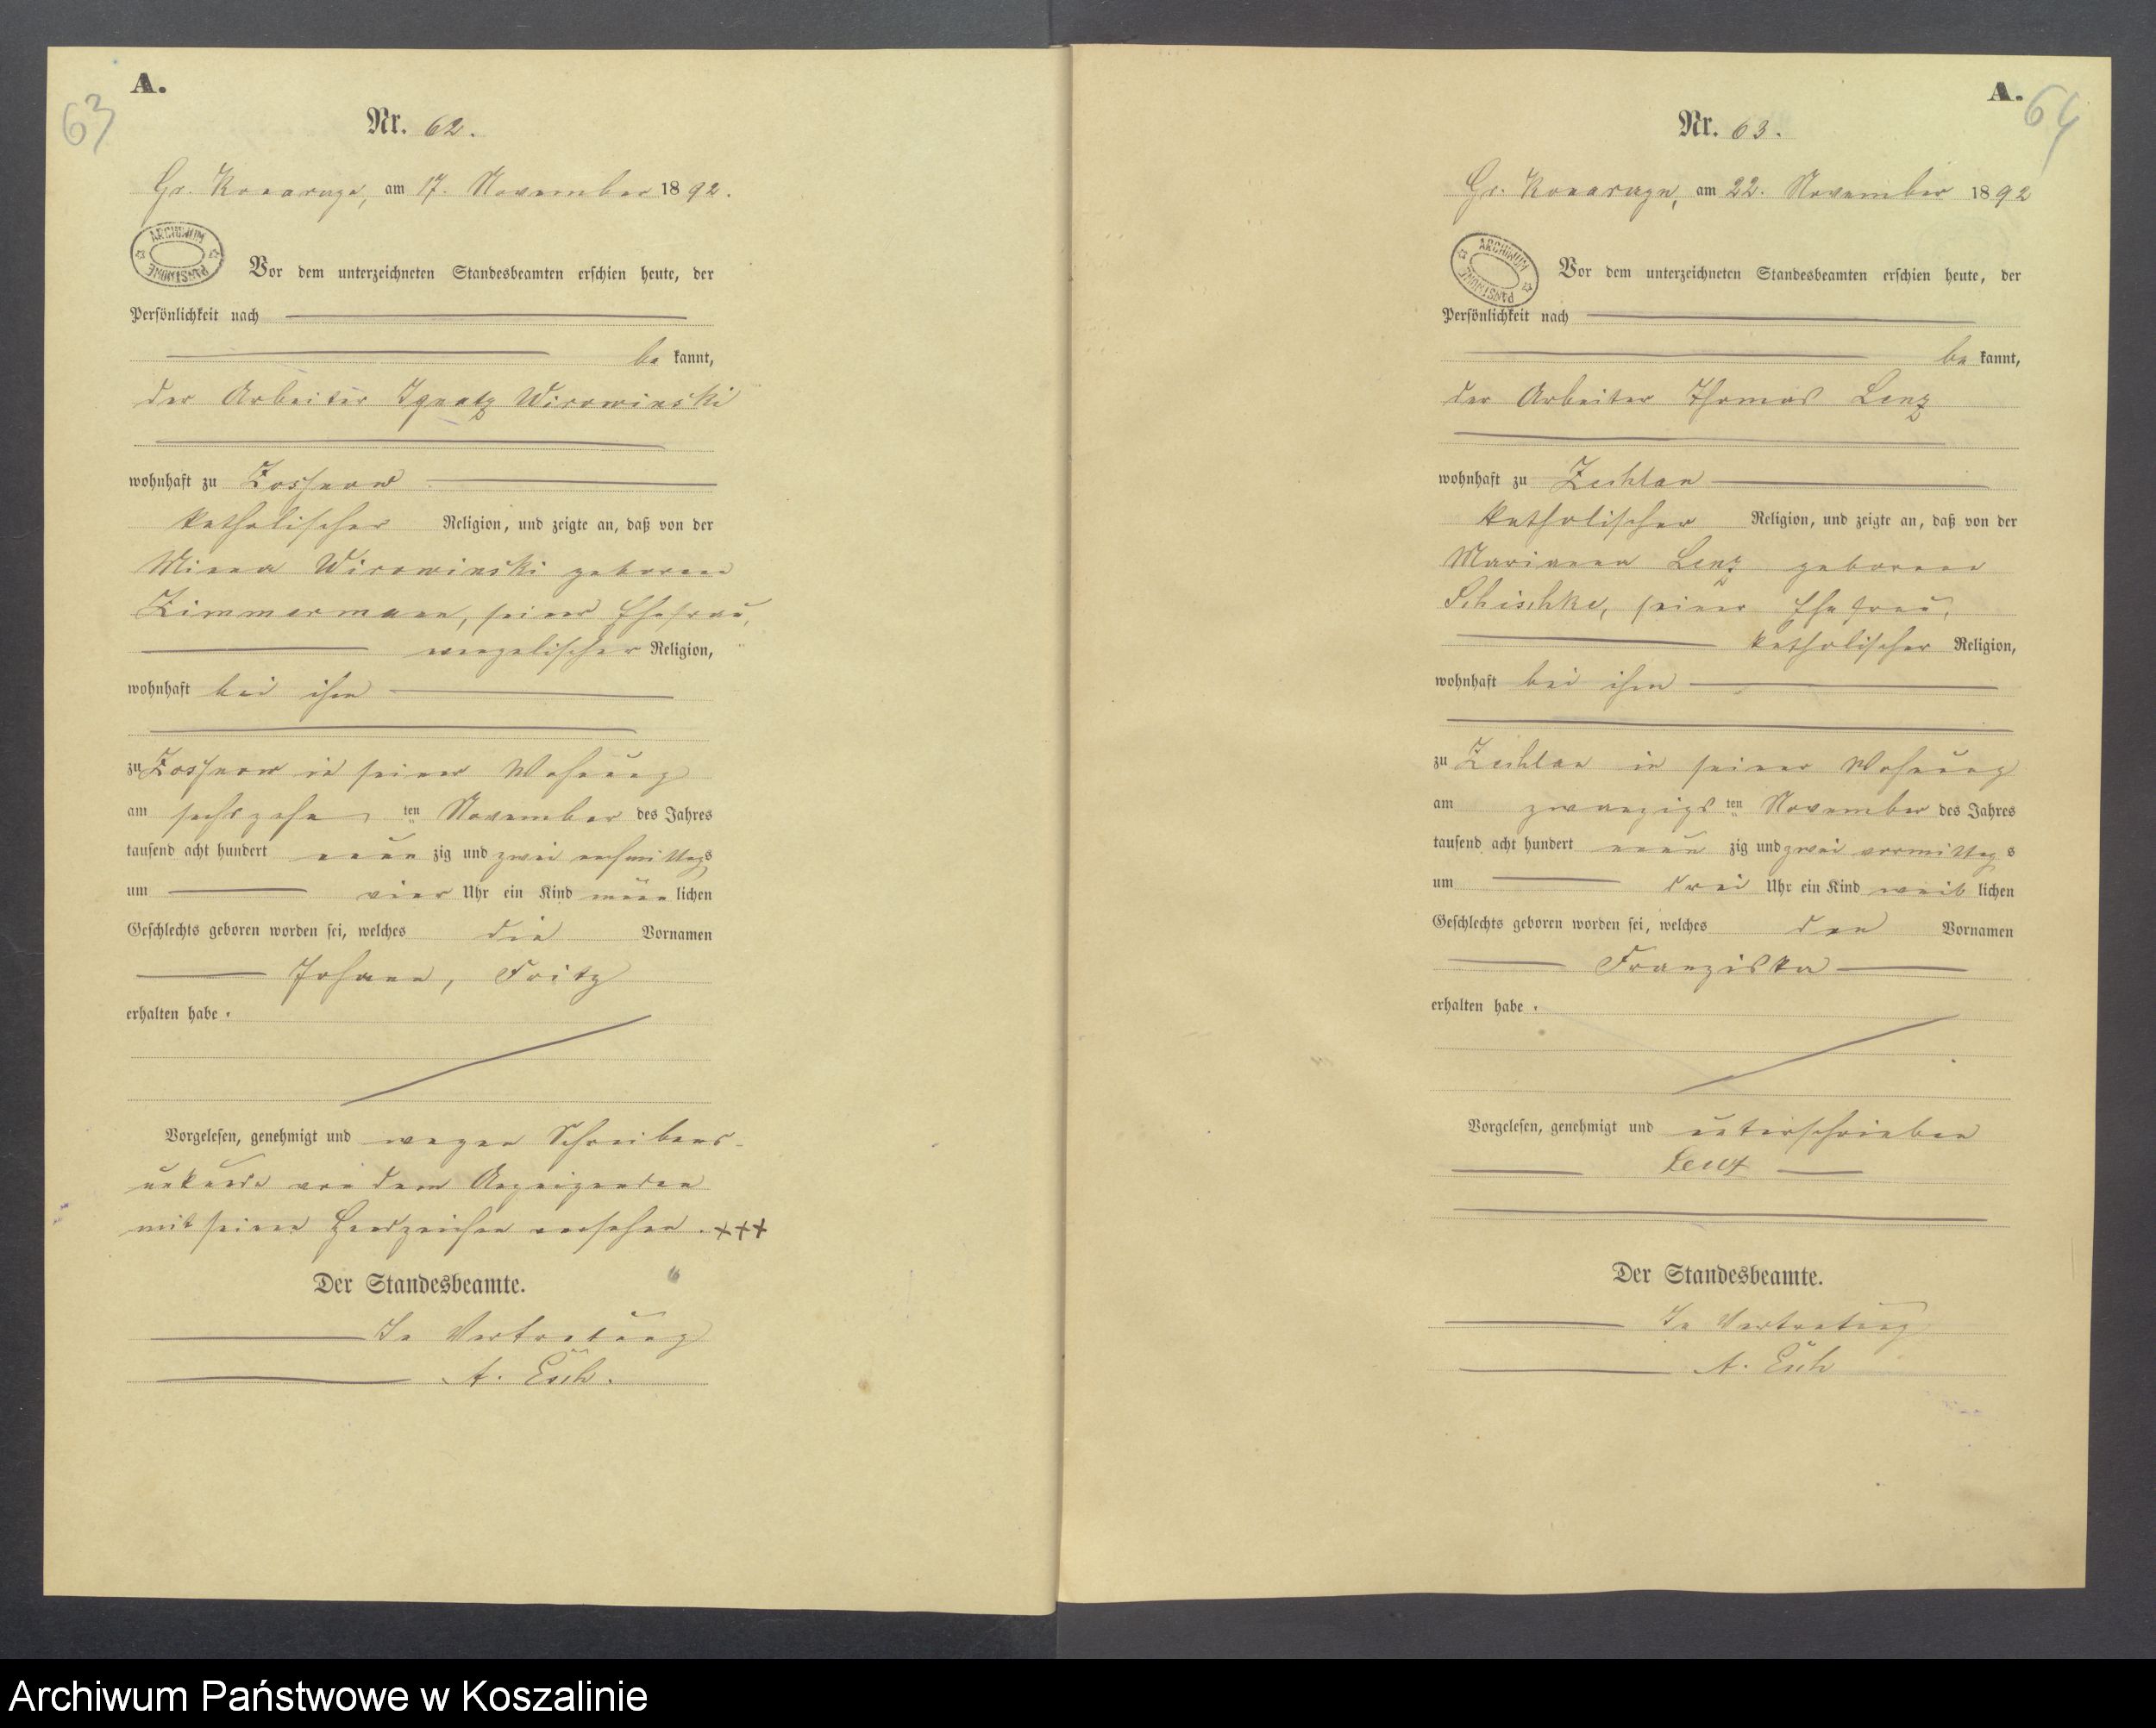 A.
63
Nr. 62.
Gr. Konarczyn, am 17. November 1892.
ARCHIWUM PAŃSTWOWE
Vor dem unterzeichneten Standesbeamten erschien heute, der
Persönlichkeit nach
be kannt,
der Arbeiter Ignatz Wirowinski
wohnhaft zu Zossnow
katholischer Religion, und zeigte an, daß von der
Minna Wirowinski geborene
Zimmermann, seiner Ehefrau,
evangelischer Religion,
wohnhaft bei ihm
zu Zossnow in seiner Wohnung
am sechszehn ten November des Jahres
tausend acht hundert neun zig und zwei nachmittags
um vier Uhr ein Kind männ lichen
Geschlechts geboren worden sei, welches die Vornamen
Johann, Fritz
erhalten habe.
Vorgelesen, genehmigt und wegen Schreibens-
unkunde von dem Anzeigenden
mit seinen Handzeichen versehen. +++
Der Standesbeamte.
In Vertretung
A. Esch.
A.
64
Nr. 63.
Gr. Konarczyn, am 22. November 1892
ARCHIWUM PAŃSTWOWE
Vor dem unterzeichneten Standesbeamten erschien heute, der
Persönlichkeit nach
be kannt,
der Arbeiter Thomas Lenz
wohnhaft zu Zechlau
katholischer Religion, und zeigte an, daß von der
Marianna Lenz geborene
Schischke, seiner Ehefrau,
katholischer Religion,
wohnhaft bei ihm
zu Zechlau in seiner Wohnung
am zwanzigs ten November des Jahres
tausend acht hundert neun zig und zwei vormittag s
um drei Uhr ein Kind weib lichen
Geschlechts geboren worden sei, welches den Vornamen
Franziska
erhalten habe.
Vorgelesen, genehmigt und unterschrieben
Lenz
Der Standesbeamte.
In Vertretung
A. Esch
Archiwum Państwowe w Koszalinie